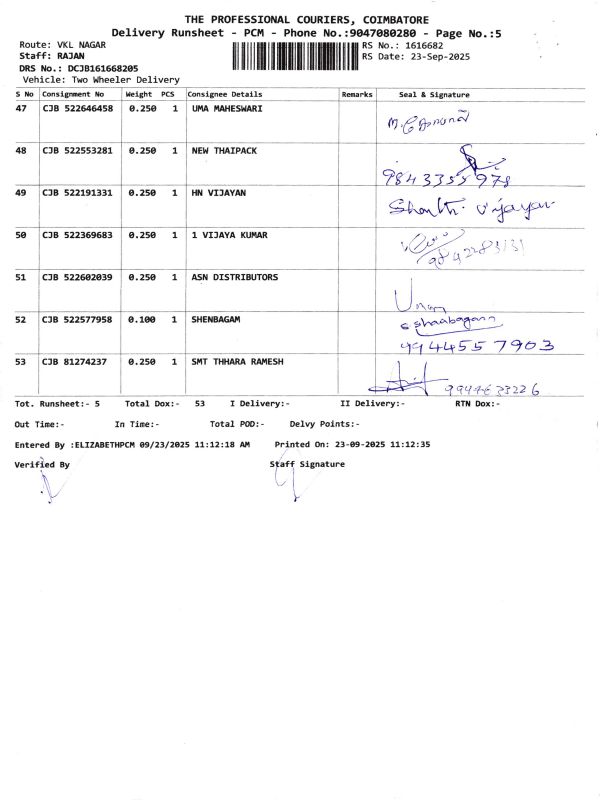 THE PROFESSIONAL COURIERS, COIMBATORE
Delivery Runsheet - PCM - Phone No.:9047080280 - Page No.:5
Route: VKL NAGAR RS No.: 1616682
Staff: RAJAN RS Date: 23-Sep-2025
DRS No.: DCJB161668205
Vehicle: Two Wheeler Delivery
S No Consignment No Weight PCS Consignee Details Remarks Seal & Signature
47 CJB 522646458 0.250 1 UMA MAHESWARI
48 CJB 522553281 0.250 1 NEW THAIPACK
9843355978
49 CJB 522191331 0.250 1 HN VIJAYAN
Shanthi Vijayan
50 CJB 522369683 0.250 1 1 VIJAYA KUMAR
9842283131
51 CJB 522602039 0.250 1 ASN DISTRIBUTORS
52 CJB 522577958 0.100 1 SHENBAGAM
9944557903
53 CJB 81274237 0.250 1 SMT THHARA RAMESH
Tot. Runsheet:- 5 Total Dox:- 53 I Delivery:- II Delivery:- RTN Dox:-
Out Time:- In Time:- Total POD:- Delvy Points:-
Entered By :ELIZABETHPCM 09/23/2025 11:12:18 AM Printed On: 23-09-2025 11:12:35
Verified By Staff Signature